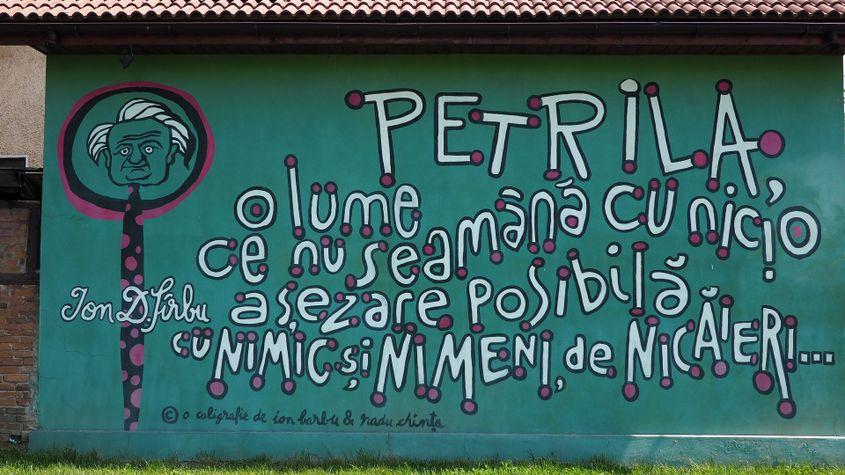 PETRILA,
o lume
ce nu seamănă cu nicio
așezare posibilă
cu NIMIC și NIMENI, de NICĂIERI...
Ion D. Sîrbu
© o caligrafie de ion barbu & radu chința